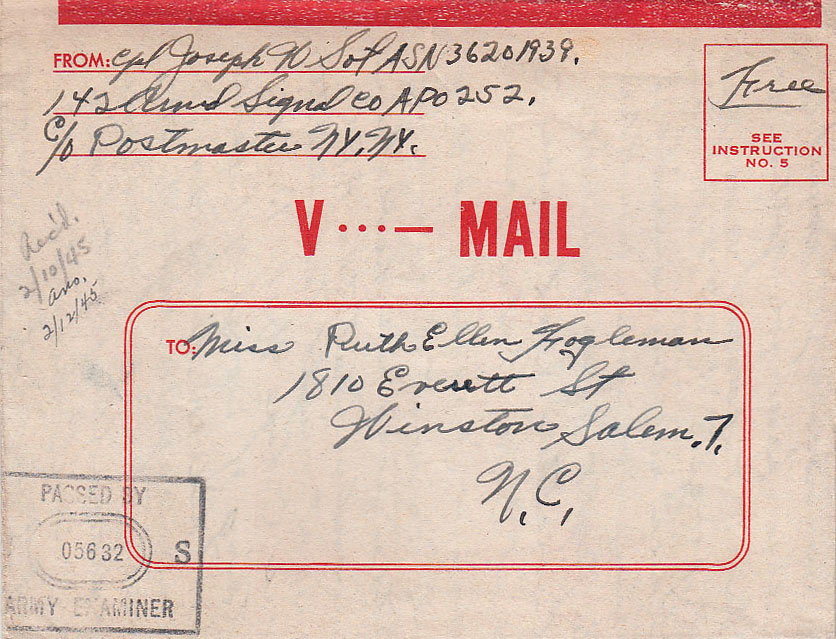 FROM: Cpl Joseph W Sot ASN 36201939.
142 Armd Signal Co APO 252.
C/O Postmaster NY, NY.
Free
SEE
INSTRUCTION
NO. 5
V ...— MAIL
Rec'd.
2/10/45
Ans.
2/12/45
TO: Miss Ruth Ellen Fogleman
1810 Everett St
Winston Salem. 7.
N.C.
PASSED BY
05632 S
ARMY EXAMINER